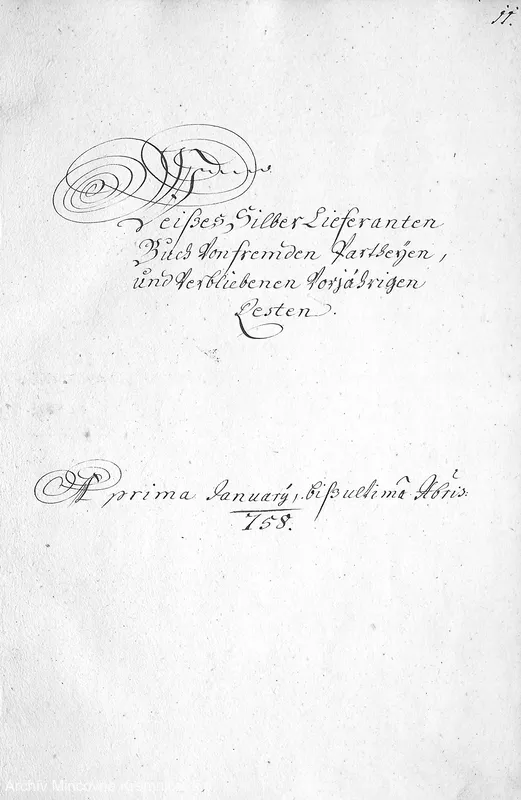 11.
Weißes Silber Lieferanten
Buch Von fremden Partheyen,
und Verbliebenen Vorjährigen
Resten.
A prima January, biß ultima Xbris:
758.
Archiv Mincovec